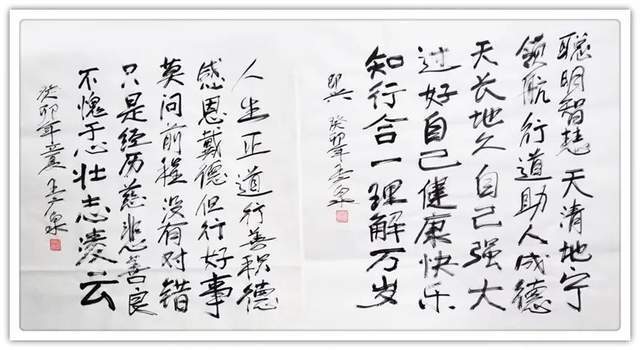 聪明智慧 天清地宁
领航行道助人成德
天长地久自己强大
过好自己健康快乐
知行合一理解万岁
癸卯年 泉
人生正道行善积德
感恩戴德但行好事
莫问前程没有对错
只是经历慈悲善良
不愧于心壮志凌云
癸卯年 泉